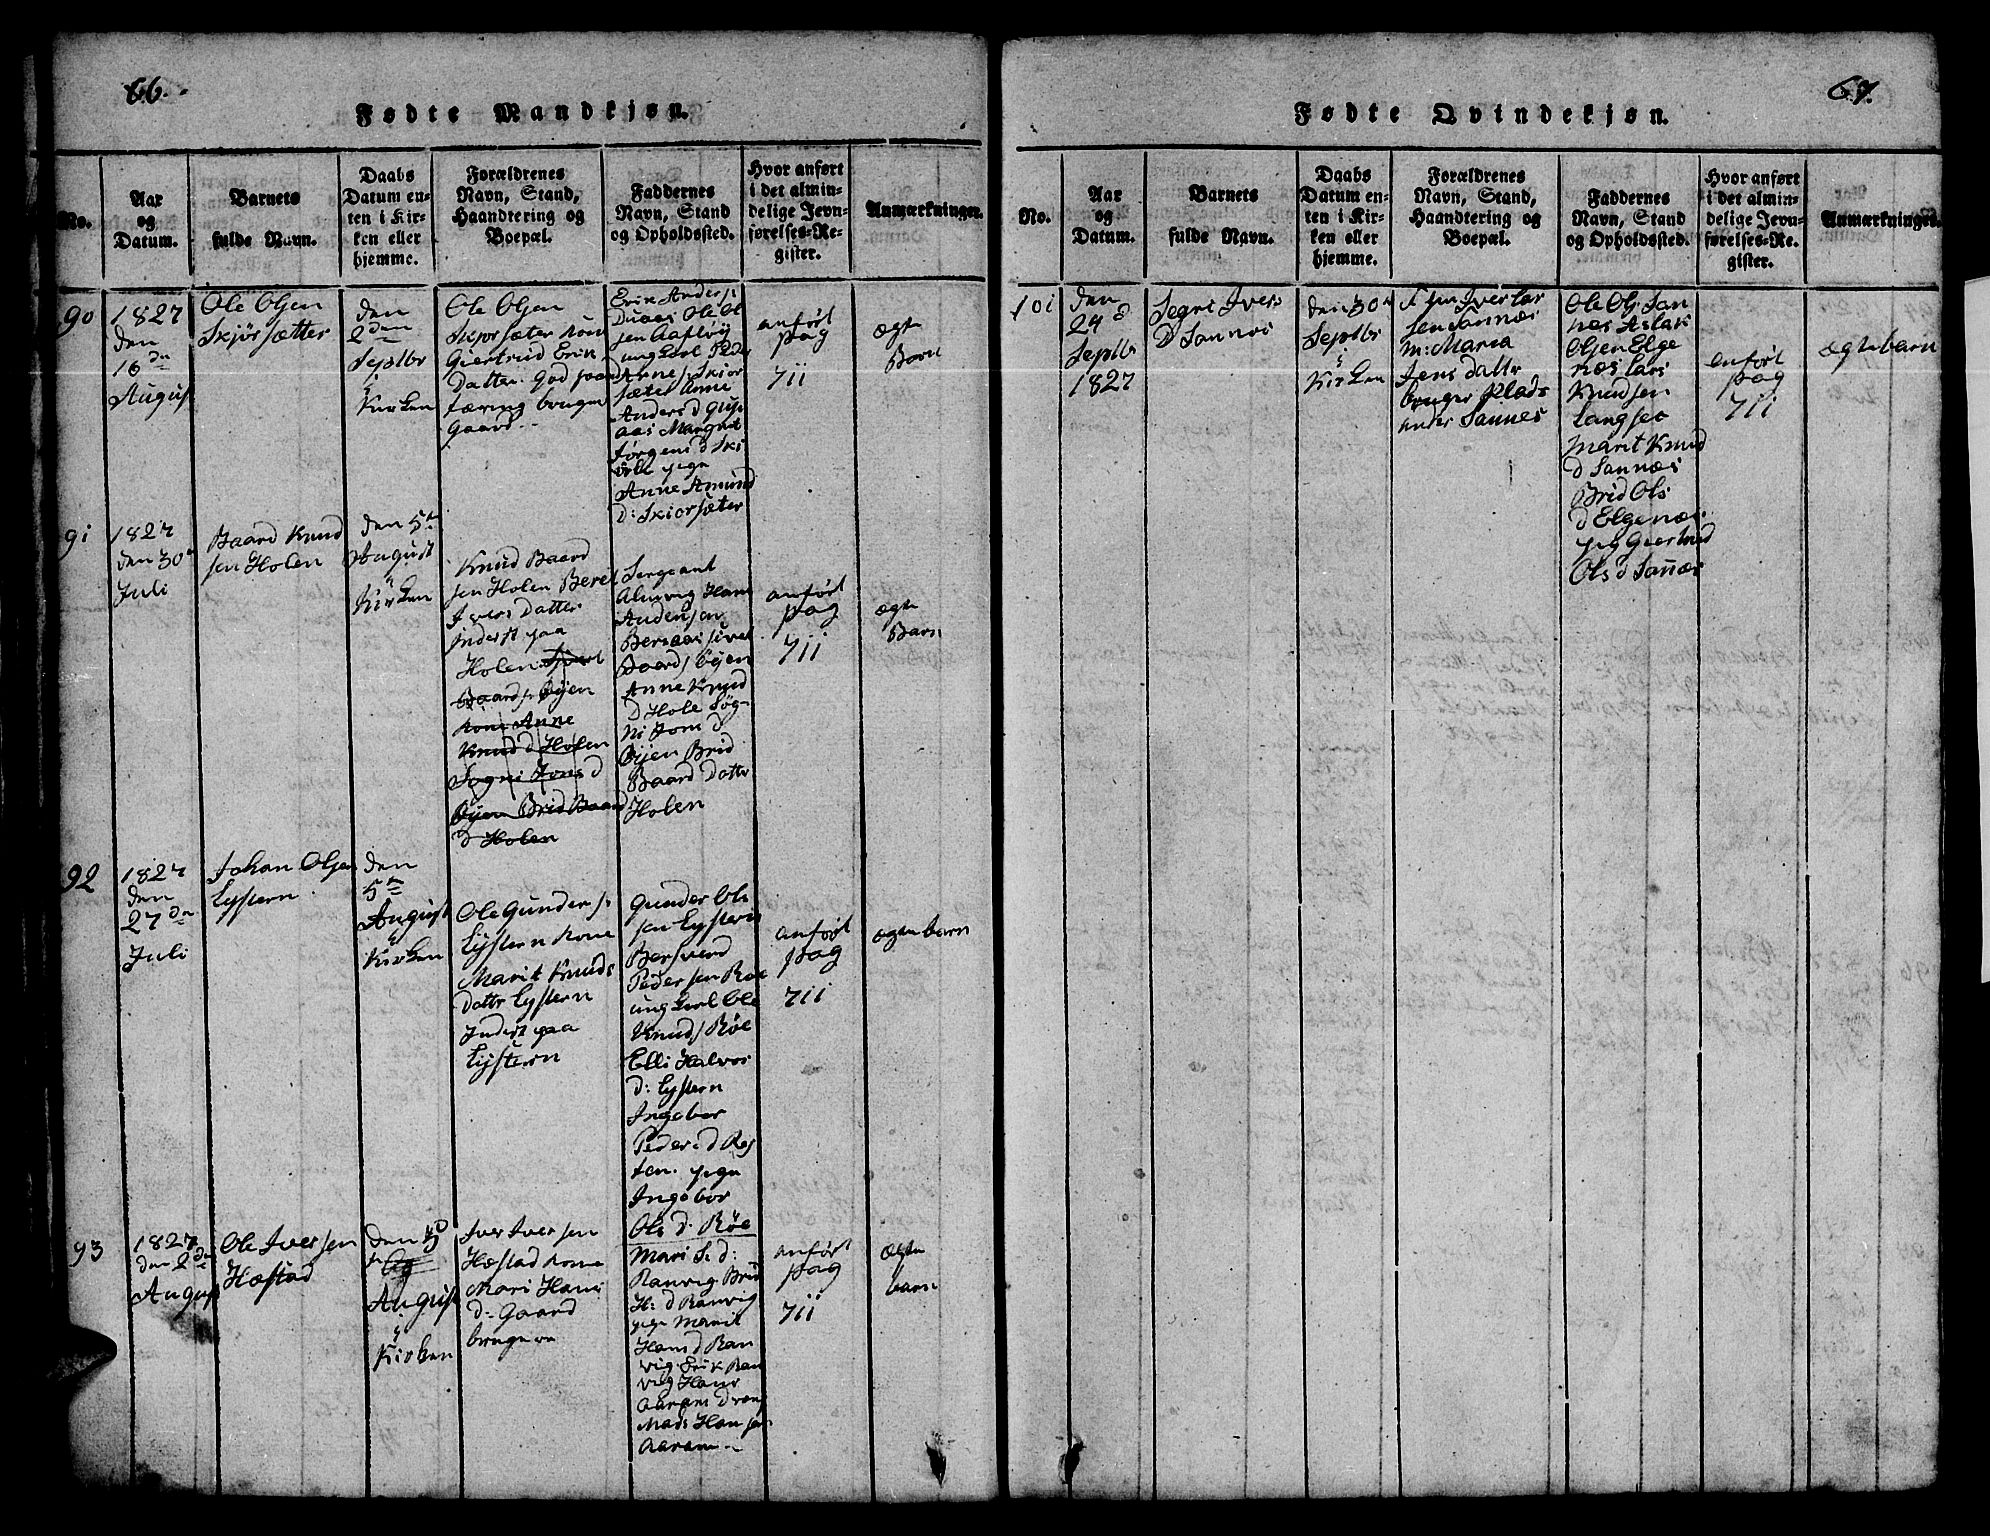 66.
Fødte Mandkjøn.
No.
Aar
og
Datum.
Barnets
fulde Navn.
Daabs
Datum en-
ten i Kir-
ken eller
hjemme.
Forældrenes
Navn, Stand,
Haandtering og
Boepæl.
Faddernes
Navn, Stand
og Opholdssted.
Hvor anført
i det almin-
delige Jevn-
førelses-Re-
gister.
Anmærkninger.
90
1827
den
16 dn
August
Ole Olsen
Skjørsætter
den
2den
Septbr
i
Kirken
Ole Olsen
Skjorsæter kone
Giertrud Erik
Datter. God
bruger
Gaard
Erik Anders
Ole Ol
sen
ungkarl Peder
Arne Skior
sæter Anne
Anders d
aas Margret
Jørgens d
pige
Anne Amund
d: Skiorsæter
anført
pag
711
ægte
Barn
91
1827
den 30
Juli
Baard Knud
sen Holen
den 5te
August
i
Kirken
Knud Baard
sen Holen Beret
Ivers Datter
Inderst paa
Holen Sivert
Baards Øijen
kone Anne
Knud d Holen
Sogni Jons d
Øijen Brid Baard
d Holen
Sergeant
Hans
Andersen
Sivert
Baards Øijen
Anne Knud
d Hole Sog-
ni Jons d
Øijen Brid
Baard Dattr
Holen
anført
pag
711
ægte
Barn
92
1827
den
27 dn
Juli
Johan Olsen
Lystern
den
5te
August
i
Kirken
Ole Gunders
Lystern Kone
Marit Knuds
Dattr Lystern
Inderst paa
Lystern
Gunder Ole
sen Lystern
Bersverd
Pedersen Røe
ungkarl Ole
Knuds Røe
Elli Halvor
d: Lystern
Ingebor
Peders d Røs
ten. pige
Ingebor
Ols d. Røe
anført
pag
711
ægte barn
93
1827
den 2dn
August
Ole Iversen
Hæstad
den 5
August
i
Kirken
Iver Iversen
Hæstad kone
Mari Hans
d: Gaard
bruger
Mari S. d:
Ranvig Brid
H: d Ranvig
pige Marit
Hans d Ran
vig Erik Ran
vig Hans
Aaram
Mads Hansen
Aaram
anført
pag
711
ægte
barn
67.
Fødte Qvindekjøn.
No.
Aar
og
Datum.
Barnets
fulde Navn.
Daabs
Datum en-
ten i Kir-
ken eller
hjemme.
Forældrenes
Navn, Stand,
Haandtering og
Boepæl.
Faddernes
Navn, Stand
og Opholdssted.
Hvor anført
i det almin-
delige Jevn-
førelses-Re-
gister.
Anmærkninger.
101
den
24 d
Septbr
1827
Segni Ivers
D Sannes
den 30
Septbr
i
Kirken
Iver Lar
sen Sannes
m: Maria
Jens dattr
bruger Plads
under Sannes
Ole Ols San
nes Aslak
Olsen Elge
næs Lars
Knudsen
Langset
Marit Knud
d Sannæs
Brid Ols
d Elgenæs
pig Giertrud
Ols d Sannæs
anført
pag
711
ægte barn